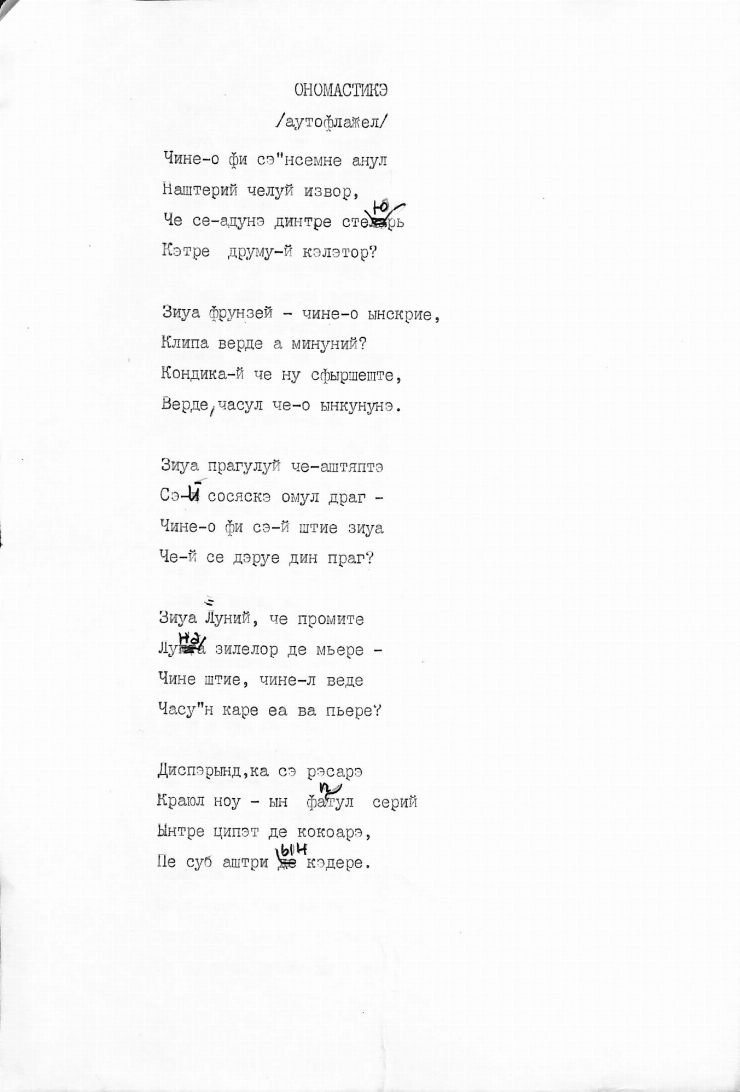 ОНОМАСТИКЭ
/аутофлажел/
Чине-о фи сэ"нсемне анул
Наштерий челуй извор,
Че се-адунэ динтре
Кэтре друму-й кэлэтор?
Зиуа фрунзей – чине-о ынскрие,
Клипа верде а минуний?
Кондика-й че ну сфыршеште,
Верде, часул че-о ынкунунэ.
Зиуа прагулуй че-аштяптэ
Сэ-й сосяскэ омул драг –
Чине-о фи сэ-й штие зиуа
Че-й се дэруе дин праг?
Зиуа Луний, че промите
Луна зилелор де мьере –
Чине штие, чине-л веде
Часу"н каре еа ва пьере?
Диспэрынд,ка сэ рэсарэ
Краюл ноу – ын фаптул серий
Ынтре ципэт де кокоарэ,
Пе суб аштри ын кэдере.